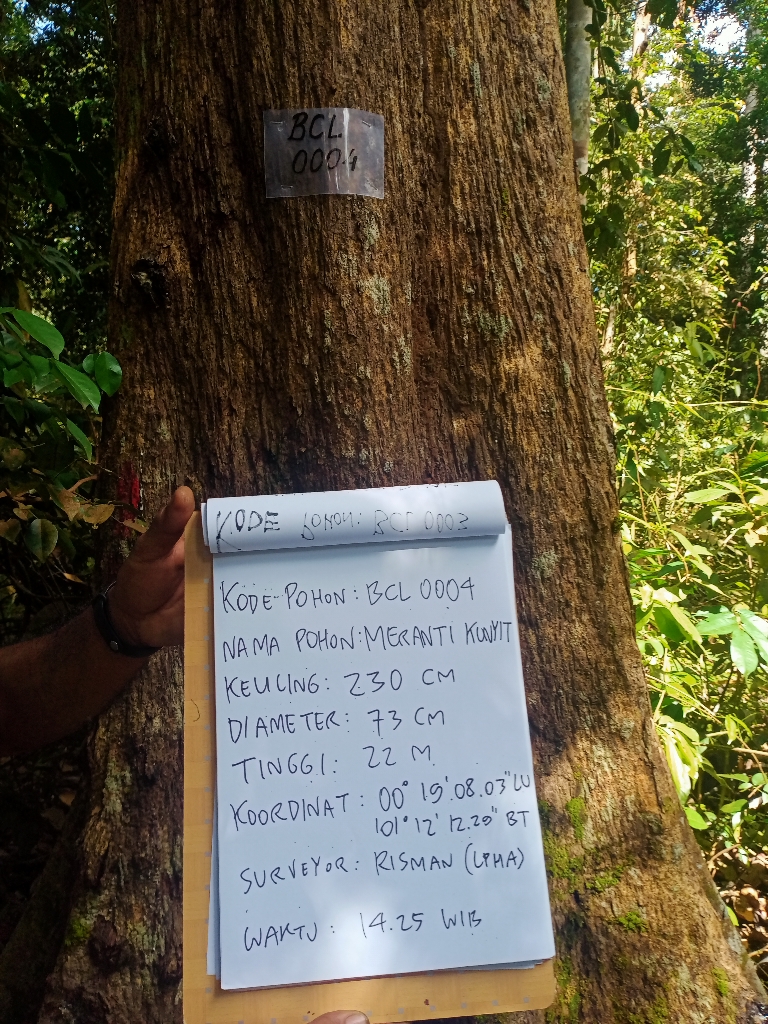 BCL
0004
KODE POHON: BCL 0003
KODE POHON: BCL 0004
NAMA POHON: MERANTI KUNYIT
KELICING: 230 CM
DIAMETER: 73 CM
TINGGI: 22 M
KOORDINAT: 00° 19'.08.03" LU
101° 12' 12.20" BT
SURVEYOR: RISMAN (LPHA)
WAKTU: 14.25 WIB